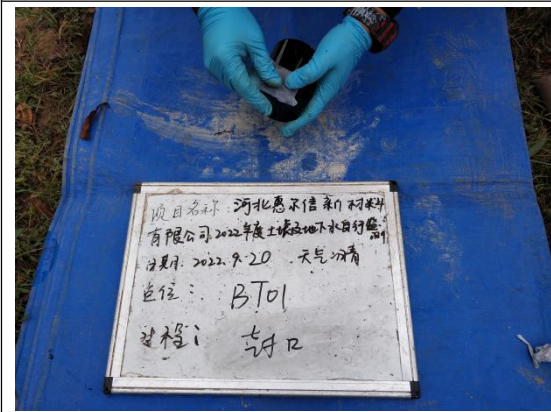 项目名称：河北惠尔信新材料
有限公司2022年度土壤及地下水自行监测
日期：2022.9.20 天气：晴
点位：BT01
过程：封口